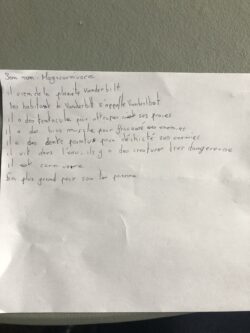 Son nom: Megacarnivore
il vien de la planete Vanderbilt
les habitant de Vanderbilt s'appelle Vanderlbot
il a des tentacule pour attraper ses proies
il a des bras muscle pour
il a des dents pointus pour déchicté ses enemies
il vit dans l'eau, ils y a des creatures tres dangereuse
il est carnivore
son plus grand peur son les